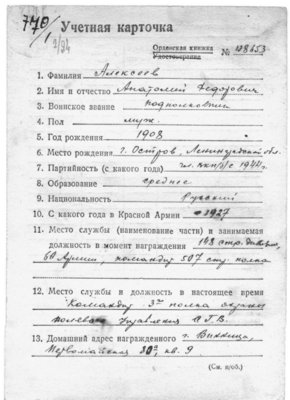 770/1
2/94
Учетная карточка
Орденская книжка
Удостоверение
№ 108653
1. Фамилия Алексеев
2. Имя и отчество Анатолий Федорович
3. Воинское звание подполковник
4. Пол муж.
5. Год рождения 1908
6. Место рождения г. Остров, Ленинградской обл.
7. Партийность (с какого года) чл. ВКП/б/с 1944 г.
8. Образование среднее
9. Национальность Русский
10. С какого года в Красной Армии с 1927
11. Место службы (наименование части) и занимаемая
должность в момент награждения 148 стр. дивизия,
60 Армии, командир 507 стр. полка
12. Место службы и должность в настоящее время
Командир 3го полка охраны
полевого Управления ЦГВ.
13. Домашний адрес награжденного г. Винница,
Первомайская 30а, кв. 9
(См. н/об.)